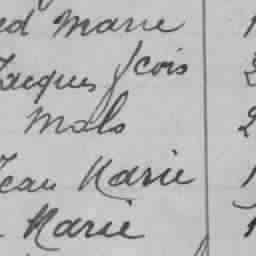 ed Marie 1
Jacques fcois 2
Mals 2
Jean Marie 1
Marie 1